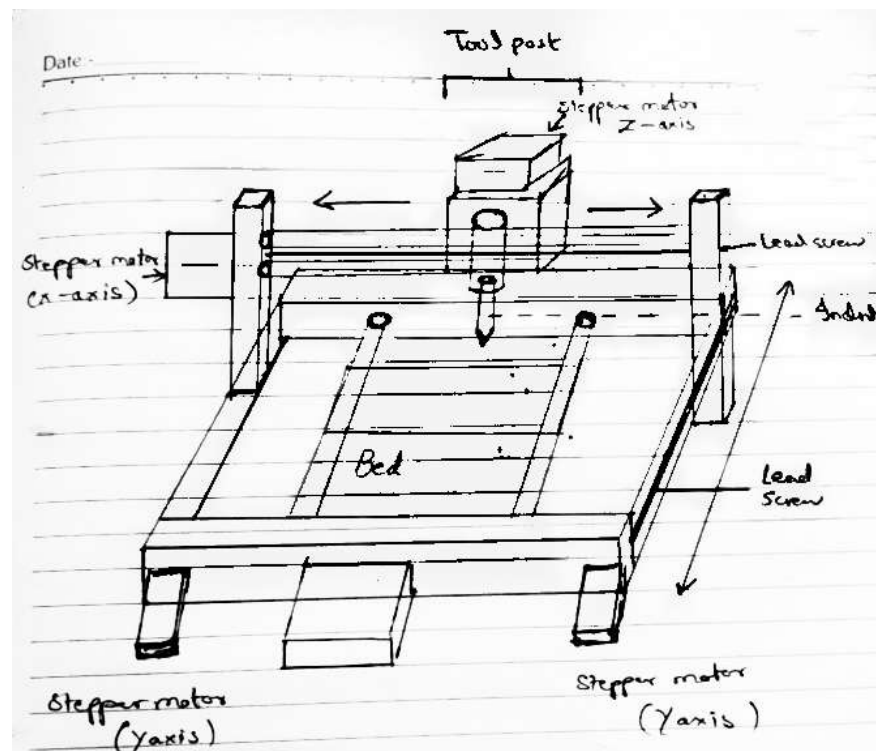 Date:-
Tool post
Stepper motor
Z-axis
Stepper motor
(x-axis)
Lead screw
Bed
Lead
Screw
Stepper motor
(Yaxis)
Stepper motor
(Yaxis)